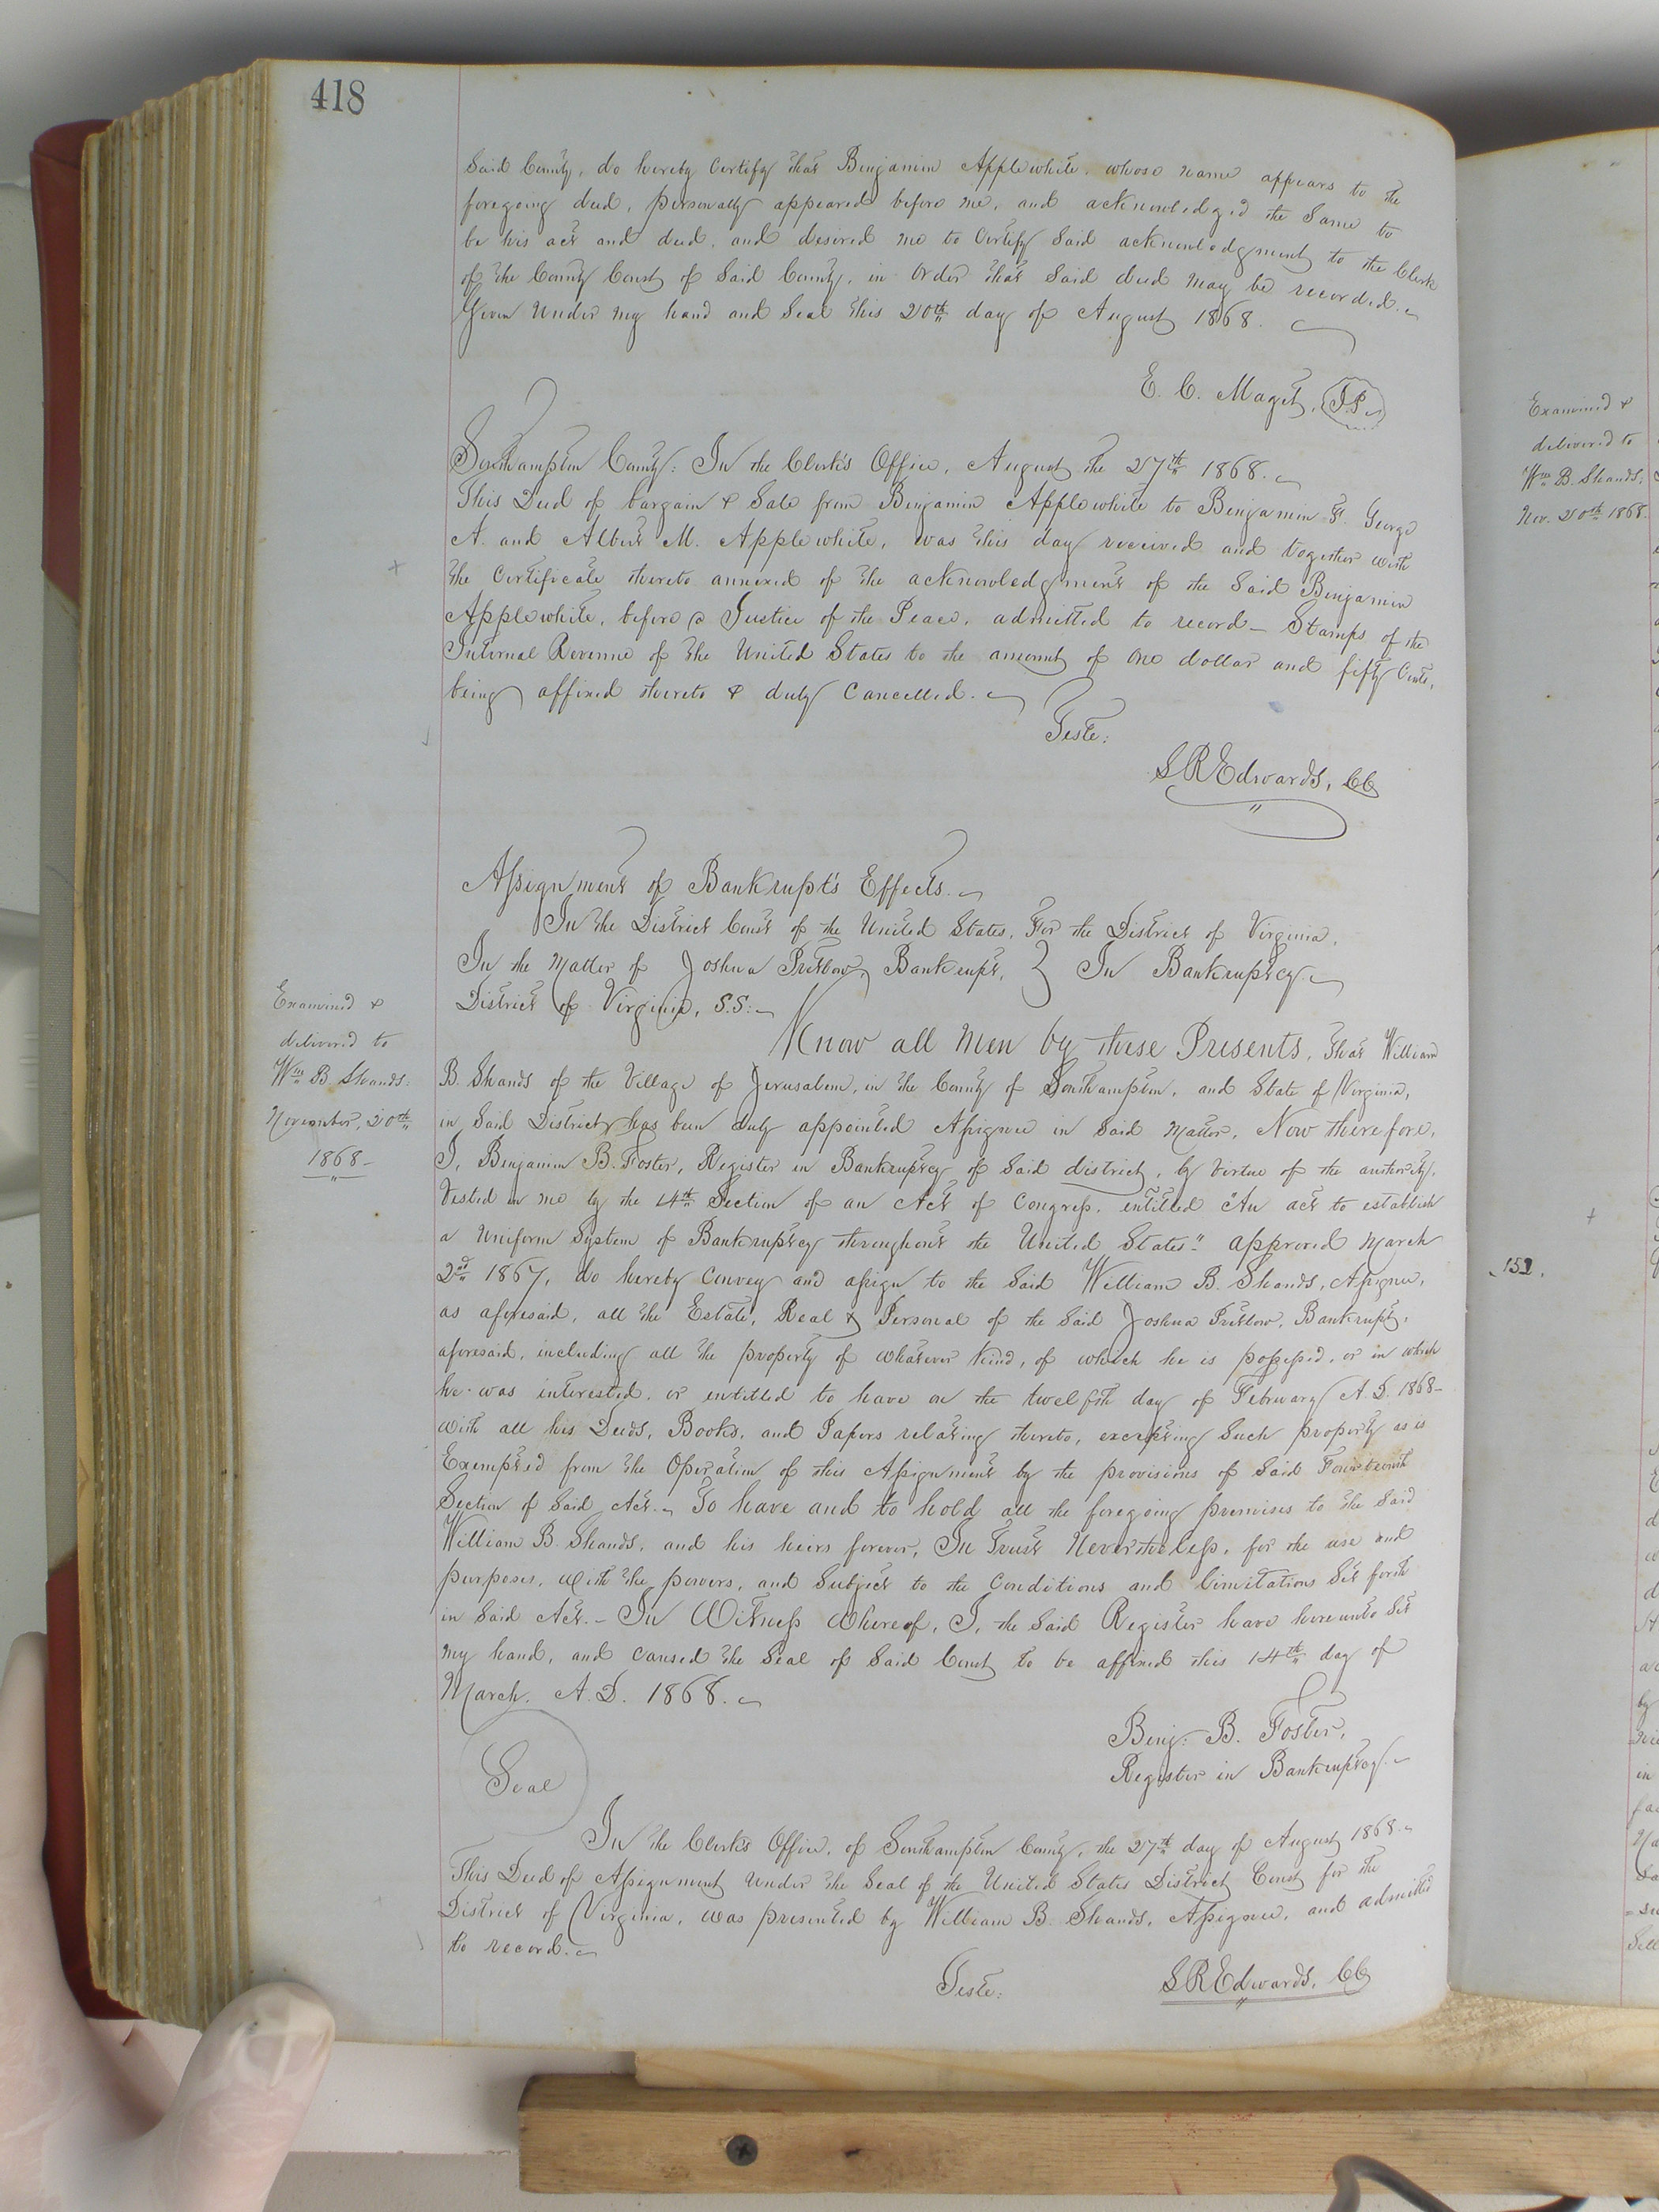 418
Said County, do hereby Certify that Benjamin Applewhite, whose name appears to the
foregoing deed, personally appeared before me, and acknowledged the Same to
be his act and deed, and desired me to Certify Said acknowledgment to the Clerk
of the County Court of Said County, in order that Said deed may be recorded.
Given Under my hand and Seal this 20th day of August 1868.
E. C. Maget, J.P.
Southampton County: In the Clerk's Office, August the 27th 1868.
This Deed of bargain & Sale from Benjamin Applewhite to Benjamin F. George
A. and Albert M. Applewhite, was this day received and together with
the Certificate thereto annexed of the acknowledgment of the Said Benjamin
Applewhite, before a Justice of the Peace, admitted to record – Stamps of the
Internal Revenue of the United States to the amount of One dollar and fifty Cents,
being affixed thereto & duly Cancelled.
Teste:
S R Edwards, CC
Assignment of Bankrupt's Effects.
In the District Court of the United States, For the District of Virginia.
In the Matter of Joshua Pretlow, Bankrupt, } In Bankruptcy
District of Virginia, S.S:
Know all Men by these Presents, That William
B. Shands of the Village of Jerusalem, in the County of Southampton, and State of Virginia,
in Said District has been duly appointed Assignee in Said Matter, Now therefore,
I, Benjamin B. Foster, Register in Bankruptcy of Said district, by Virtue of the authority,
Vested in me by the 14th Section of an Act of Congress, entitled "An act to establish
a Uniform System of Bankruptcy throughout the United States" approved March
2nd 1867, do hereby Convey and assign to the Said William B. Shands, Assignee,
as aforesaid, all the Estate, Real & Personal of the Said Joshua Pretlow, Bankrupt,
aforesaid, including all the property of whatever Kind, of which he is possessed, or in which
he was interested, or entitled to have on the twelfth day of February A.D. 1868 –
with all his Deeds, Books, and Papers relating thereto, excepting Such property as is
Exempted from the Operation of this Assignment by the provisions of Said Fourteenth
Section of Said Act. To have and to hold all the foregoing premises to the Said
William B. Shands, and his heirs forever, In Trust Nevertheless, for the use and
purposes, with the powers, and Subject to the Conditions and limitations Set forth
in Said Act. – In Witness Whereof, I, the Said Register have hereunto Set
my hand, and Caused the Seal of Said Court to be affixed this 14th day of
March, A.D. 1868.
Benj: B. Foster,
Register in Bankruptcy.
Seal
In the Clerk's Office, of Southampton County, the 27th day of August 1868.
This Deed of Assignment Under the Seal of the United States District Court for the
District of Virginia, was presented by William B. Shands, Assignee, and admitted
to record.
Teste:
S R Edwards, CC
Examined &
delivered to
Wm B. Shands:
November, 20th
1868 –
Examined &
delivered to
Wm B. Shands,
Nov. 20th 1868.
152.